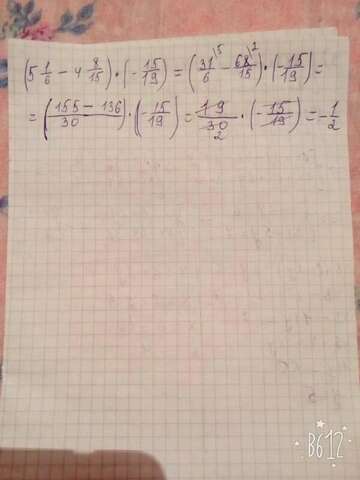 (5 1/6 - 4 8/15) · (- 15/19) = (31/6 \5 - 68/15 \2) · (- 15/19) =
= (155 - 136 / 30) · (- 15/19) = 19/30 2 · (- 15/19) = - 1/2
B612